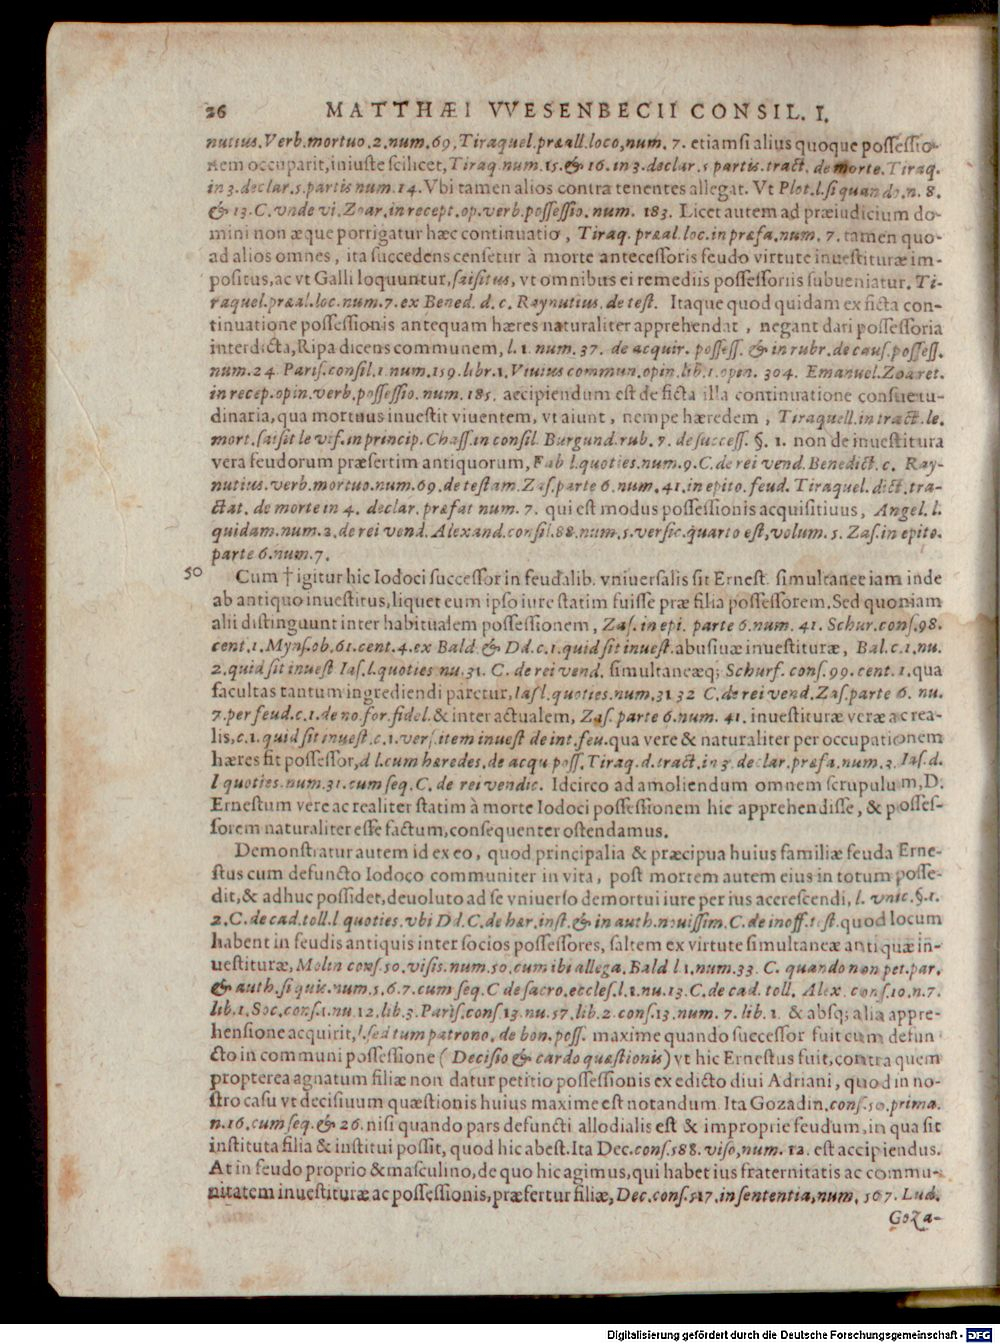 26 MATTHÆI VVESENBECII CONSIL. I.
nutius. Verb. mortuo. 2. num. 69, Tiraquel. præall. loco, num. 7. etiamsi alius quoque possessio-
nem occuparit, iniuste scilicet, Tiraq. num. 15. & 16. in 3. declar. 5 partis. tract. de morte. Tiraq.
in 3. declar. 5. partis num. 14. Vbi tamen alios contra tenentes allegat. Vt Plot. l. si quando. n. 8.
& 13. C. vnde vi. Zoar. in recept. op. verb. possessio. num. 183. Licet autem ad præiudicium do-
mini non æque porrigatur hæc continuatio, Tiraq. præal. loc. in præfa. num. 7. tamen quo-
ad alios omnes, ita succedens censetur à morte antecessoris feudo virtute inuestituræ im-
positus, ac vt Galli loquuntur, saisitus, vt omnibus ei remediis possessoriis subueniatur. Ti-
raquel. præal. loc. num. 7. ex Bened. d. c. Raynutius. de test. Itaque quod quidam ex ficta con-
tinuatione possessionis antequam hæres naturaliter apprehendat, negant dari possessoria
interdicta, Ripa dicens communem, l. 1. num. 37. de acquir. possess. & in rubr. de caus. possess.
num. 24 Paris. consil. 1 num. 159. libr. 1. Viuius commun. opin. lib. 1. open. 304. Emanuel. Zoaret.
in recep. opin. verb. possessio. num. 185. accipiendum est de ficta illa continuatione consuetu-
dinaria, qua mortuus inuestit viuentem, vt aiunt, nempe hæredem, Tiraquell. in tract. le.
mort. saisit le vif. in princip. Chass. in consil. Burgund. rub. 7. de success. §. 1. non de inuestitura
vera feudorum præsertim antiquorum, Fab l. quoties. num. 9. C. de rei vend. Benedict. c. Ray-
nutius. verb. mortuo. num. 69. de testam. Zas. parte 6. num. 41. in epito. feud. Tiraquel. dict. tra-
ctat. de morte in 4. declar. præfat num. 7. qui est modus possessionis acquisitiuus, Angel. l.
quidam. num. 2. de rei vend. Alexand. consil. 88. num. 5. versic. quarto est, volum. 5. Zas. in epito.
parte 6. num. 7.
50 Cum † igitur hic Iodoci successor in feudalib. vniuersalis sit Ernest. simultanee iam inde
ab antiquo inuestitus, liquet eum ipso iure statim fuisse præ filia possessorem. Sed quoniam
alii distinguunt inter habitualem possessionem, Zas. in epi. parte 6. num. 41. Schur. cons. 98.
cent. 1. Myns. ob. 61. cent. 4. ex Bald. & Dd. c. 1. quid sit inuest. abusiuæ inuestituræ, Bal. c. 1. nu.
2. quid sit inuest Ias. l. quoties nu. 31. C. de rei vend. simultaneæq; Schurf. cons. 99. cent. 1. qua
facultas tantum ingrediendi paretur, Ias l. quoties. num. 31 32 C. de rei vend. Zas. parte 6. nu.
7. per feud. c. 1. de no. for. fidel. & inter actualem, Zas. parte 6. num. 41. inuestituræ veræ ac rea-
lis, c. 1. quid sit inuest. c. 1. vers. item inuest de int. feu. qua vere & naturaliter per occupationem
hæres fit possessor, d l. cum hæredes. de acqu poss. Tiraq. d. tract. in 3. declar. præfa. num. 3. Ias. d.
l quoties. num. 31. cum seq. C. de rei vendic. Idcirco ad amoliendum omnem scrupulum, D.
Ernestum vere ac realiter statim à morte Iodoci possessionem hic apprehendisse, & posses-
sorem naturaliter esse factum, consequenter ostendamus.
Demonstratur autem id ex eo, quod principalia & præcipua huius familiæ feuda Erne-
stus cum defuncto Iodoco communiter in vita, post mortem autem eius in totum posse-
dit, & adhuc possidet, deuoluto ad se vniuerso demortui iure per ius accrescendi, l. vnic. §. 1.
2. C. de cad. toll. l quoties. vbi Dd. C. de hær. inst. & in auth. nouissim. C. de inoff. test. quod locum
habent in feudis antiquis inter socios possessores, saltem ex virtute simultaneæ antiquæ in-
uestituræ, Molin cons. 50. visis. num. 50. cum ibi allega. Bald l 1. num. 33. C. quando non pet. par.
& auth. si quis. num. 5. 6. 7. cum seq. C de sacro. eccles. l. 1. nu. 13. C. de cad. toll. Alex. cons. 10. n. 7.
lib. 1. Soc. cons. 1. nu. 12. lib. 3. Paris. cons. 13. nu. 57. lib. 2. cons. 13. num. 7. lib. 1. & absq; alia appre-
hensione acquirit, l. sed tum patrono. de bon. poss. maxime quando successor fuit cum defun
cto in communi possessione (Decisio & cardo quæstionis) vt hic Ernestus fuit, contra quem
propterea agnatum filiæ non datur petitio possessionis ex edicto diui Adriani, quod in no-
stro casu vt decisiuum quæstionis huius maxime est notandum. Ita Gozadin. cons. 50. prima.
n. 16. cum seq. & 26. nisi quando pars defuncti allodialis est & improprie feudum, in qua sit
instituta filia & institui possit, quod hic abest. Ita Dec. cons. 588. viso, num. 12. est accipiendus.
At in feudo proprio & masculino, de quo hic agimus, qui habet ius fraternitatis ac commu-
nitatem inuestituræ ac possessionis, præfertur filiæ, Dec. cons. 517. in sententia, num. 567. Lud.
Goza-
Digitalisierung gefördert durch die Deutsche Forschungsgemeinschaft - DFG